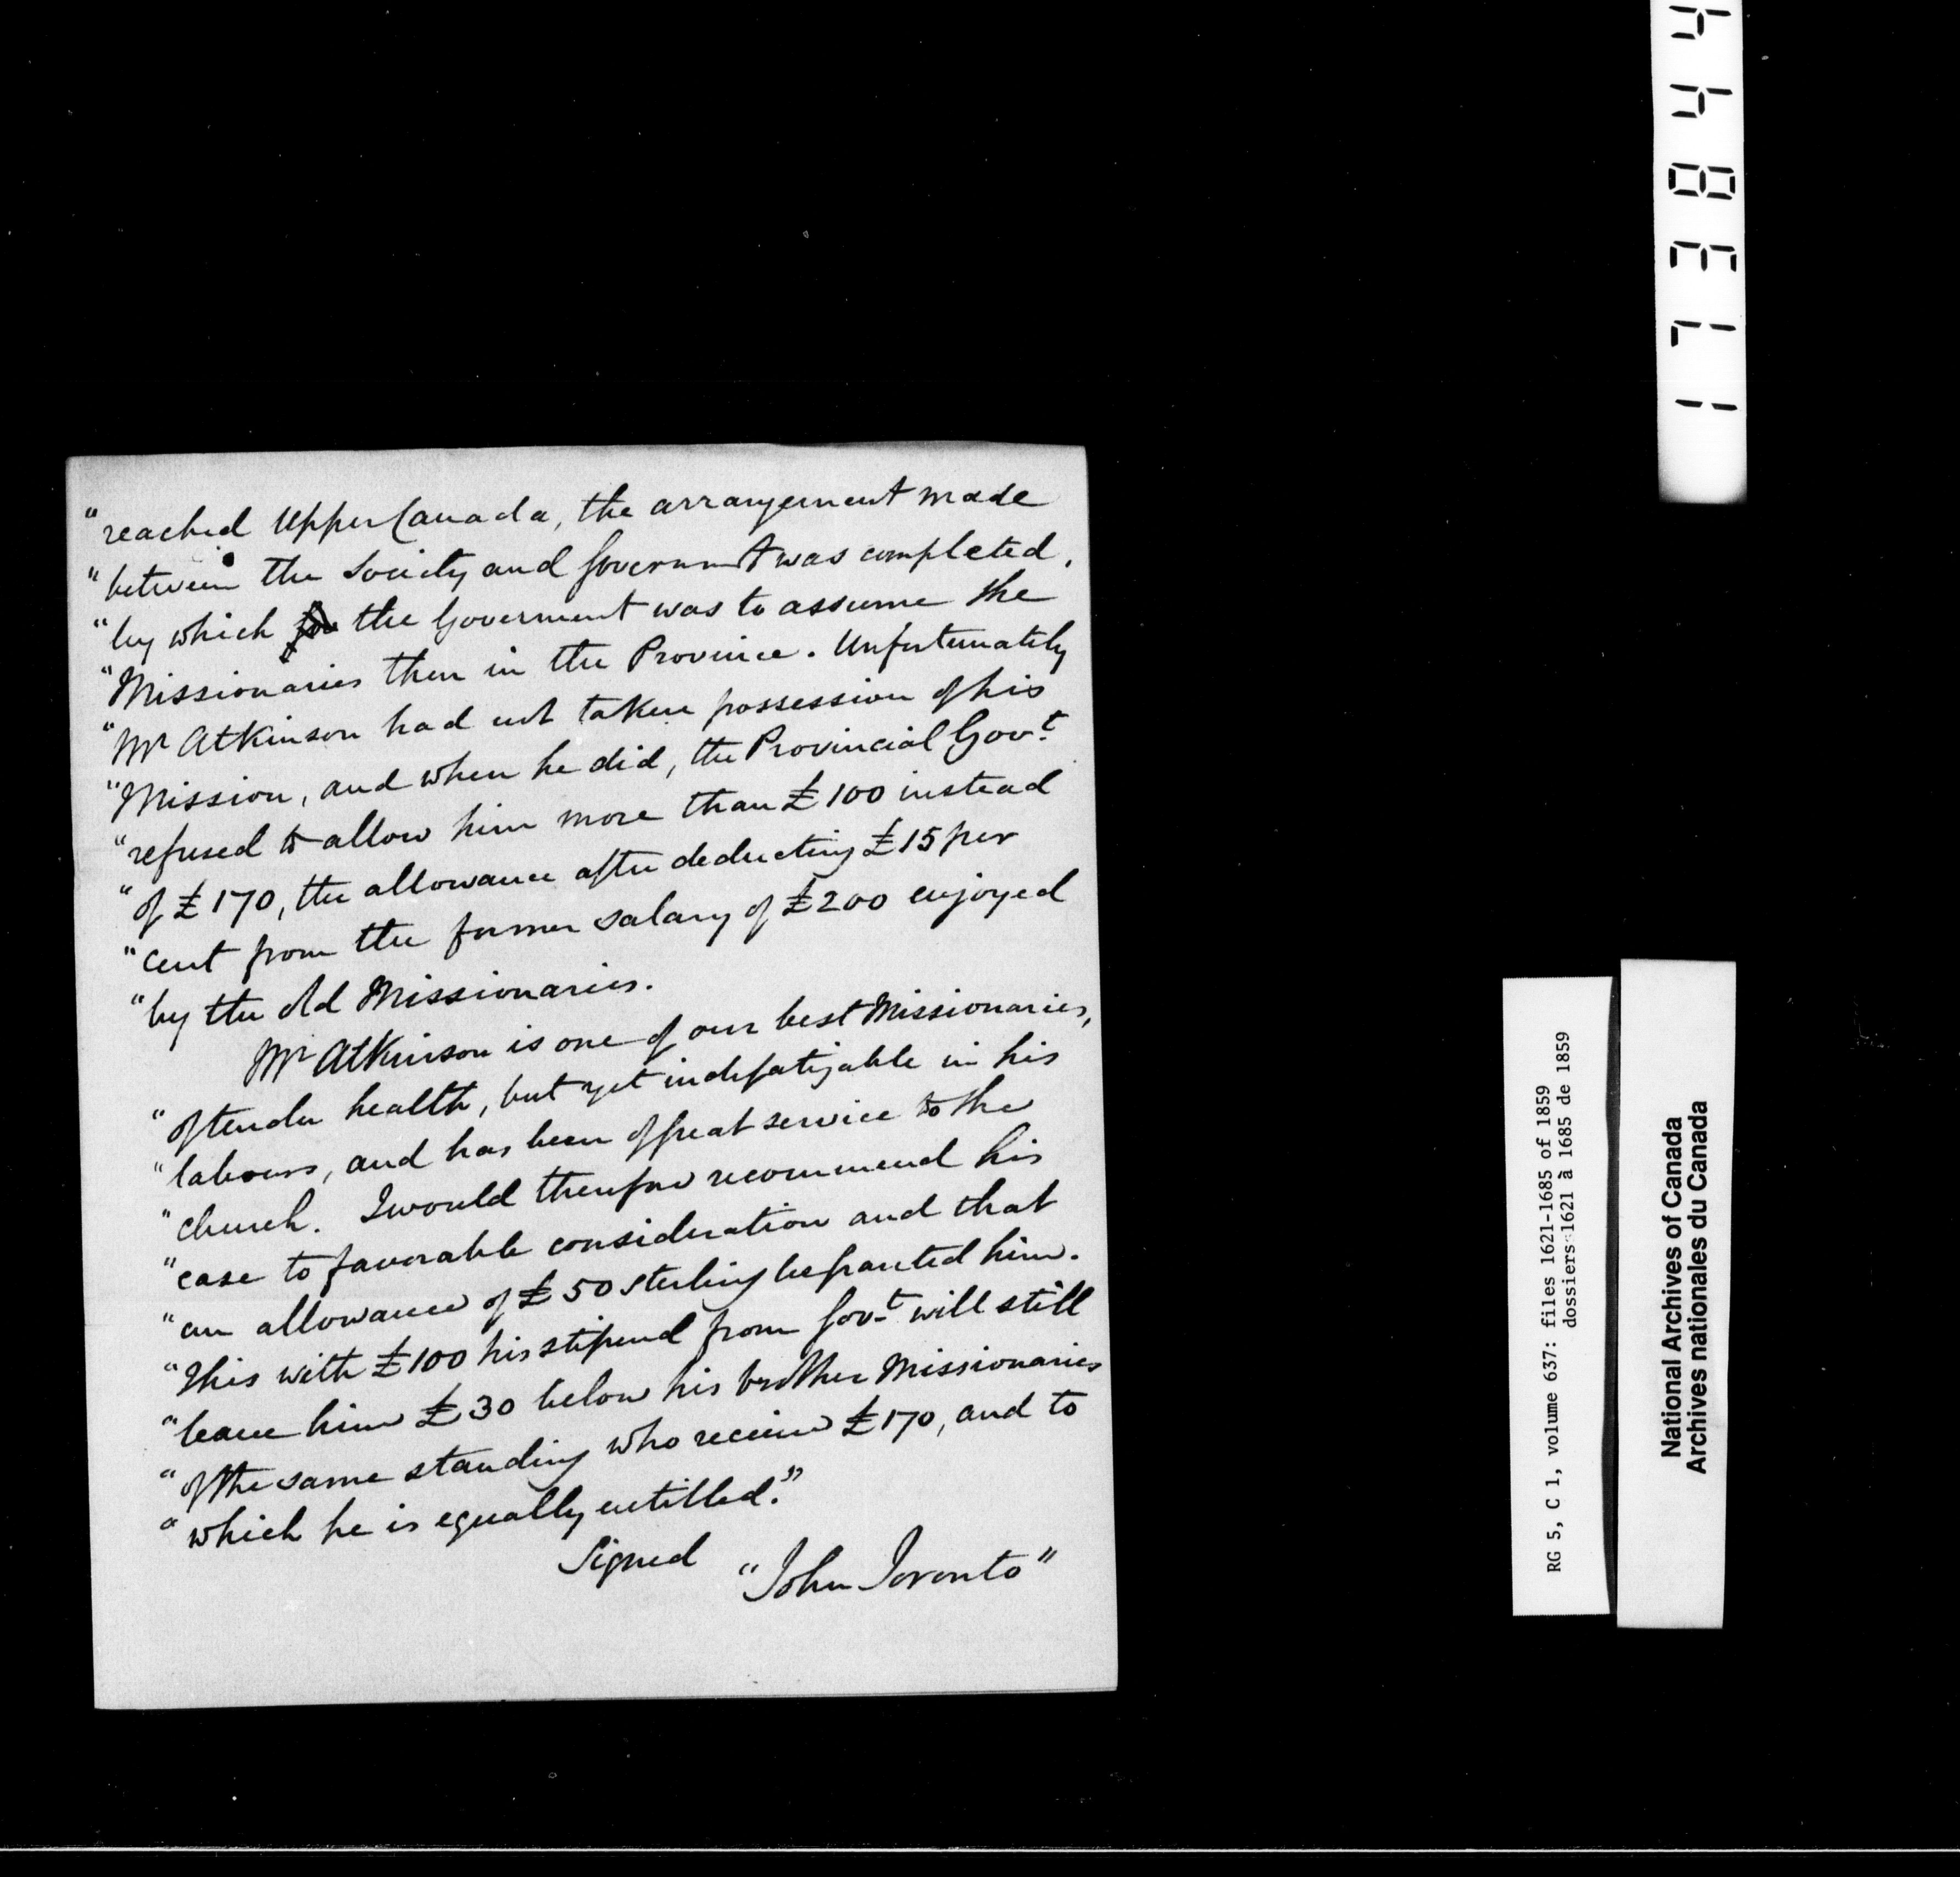 "reached Upper Canada, the arrangement made
"between the Society and Governmt was completed,
"by which the Goverment was to assume the
"Missionaries then in the Province. Unfortunately
"Mr Atkinson had not taken possession of his
"Mission, and when he did, the Provincial Govt.
"refused to allow him more than £100 instead
"of £170, the allowance after deducting £15 per
"cent from the former salary of £200 enjoyed
"by the old Missionaries.
Mr Atkinson is one of our best Missionaries,
"of tender health, but yet indefatigable in his
"labours, and has been of great service to the
"church. I would therefore recommend his
"case to favorable consideration and that
"an allowance of £50 sterling be granted him.
"This with £100 his stipend from Govt. will still
"leave him £30 below his brother Missionaries
"of the same standing who receive £170, and to
"which he is equally entitled."
Signed "John Toronto"
173844
RG 5, C 1, volume 637: files 1621-1685 of 1859
dossiers 1621 à 1685 de 1859
National Archives of Canada
Archives nationales du Canada